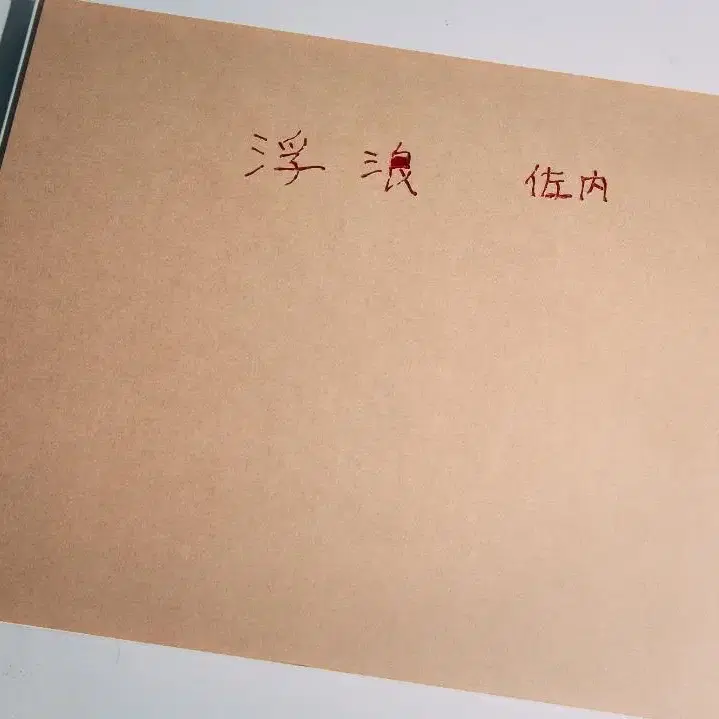 浮浪 佐内